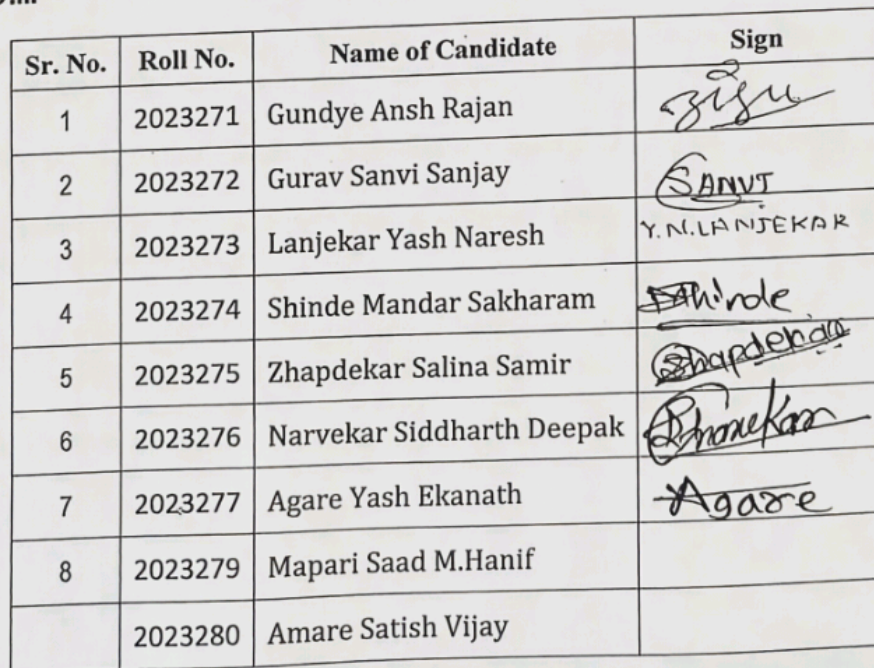 Sr. No. Roll No. Name of Candidate Sign
1 2023271 Gundye Ansh Rajan
2 2023272 Gurav Sanvi Sanjay SANVI
3 2023273 Lanjekar Yash Naresh Y.N.LANJEKAR
4 2023274 Shinde Mandar Sakharam
5 2023275 Zhapdekar Salina Samir
6 2023276 Narvekar Siddharth Deepak
7 2023277 Agare Yash Ekanath Agare
8 2023279 Mapari Saad M.Hanif
2023280 Amare Satish Vijay